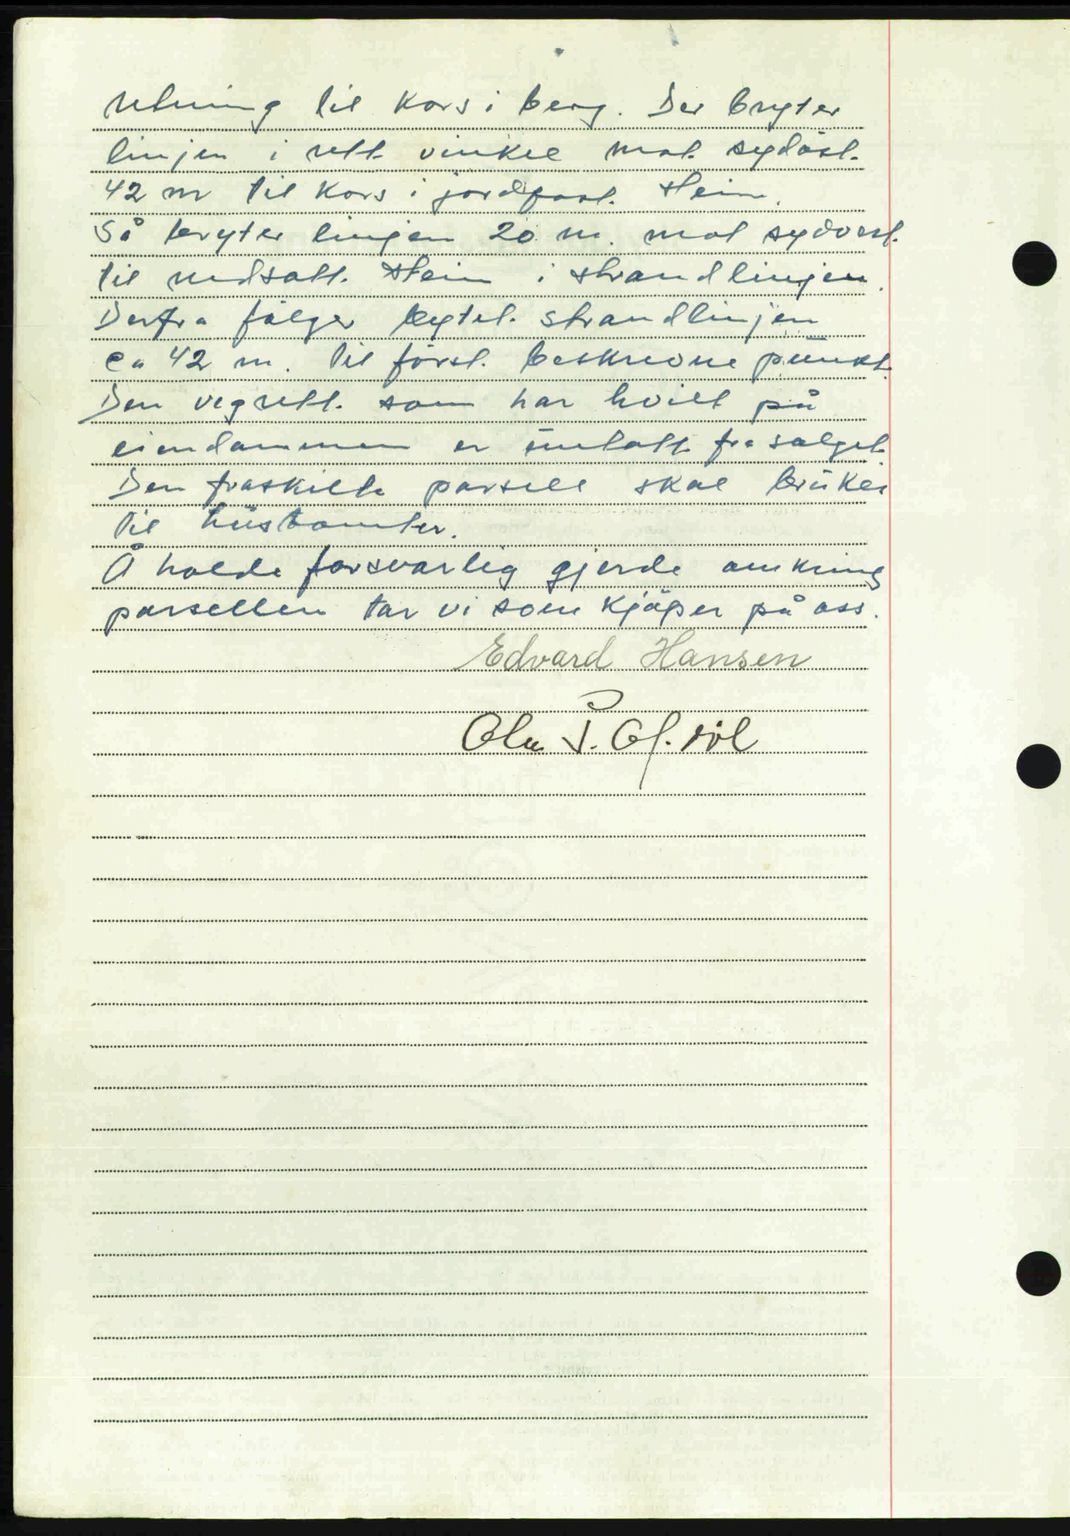 retning til Kors i berg. Der bryter
linjen i rett vinkel mot sydöst.
42 m til Kors i jordfast stein.
Så bryter linjen 20 m. mot sydvest.
til nedsatt stein i strandlinjen.
Derfra fölger bytet strandlinjen
ca 42 m. til först beskrevne punkt.
Den vegrett som har hvilt på
eiendommen er untatt fra salget.
Den fraskilte parsell skal brukes
til hustomter.
Å holde forsvarlig gjerde omkring
parsellen tar vi som kjöper på oss.
Edvard Hansen
Ola P.